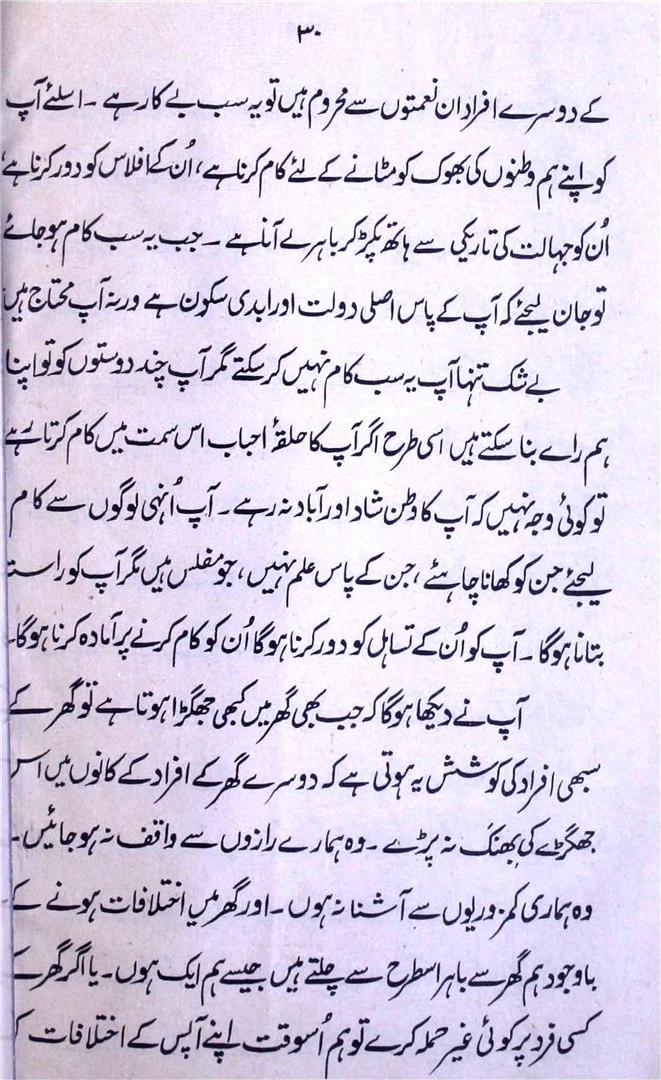 ۳۰
کے دوسرے افراد ان نعمتوں سے محروم ہیں تو یہ سب بے کار ہے ۔ اسلئے آپ
کو اپنے ہم وطنوں کی بھوک کو مٹانے کے لئے کام کرنا ہے ، اُن کے افلاس کو دور کرنا ہے ،
اُن کو جہالت کی تاریکی سے ہاتھ پکڑ کر باہر لے آنا ہے ۔ جب یہ سب کام ہو جائے
تو جان لیجئے کہ آپ کے پاس اصلی دولت اور ابدی سکون ہے ورنہ آپ محتاج ہیں
بے شک تنہا آپ یہ سب کام نہیں کر سکتے مگر آپ چند دوستوں کو تو اپنا
ہم راے بنا سکتے ہیں اسی طرح اگر آپ کا حلقۂ احباب اس سمت میں کام کرتا رہے
تو کوئی وجہ نہیں کہ آپ کا وطن شاد اور آباد نہ رہے ۔ آپ اُنہی لوگوں سے کام
لیجئے جن کو کھانا چاہئے ، جن کے پاس علم نہیں ، جو مفلس ہیں مگر آپ کو راستہ
بتانا ہوگا ۔ آپ کو اُن کے تساہل کو دور کرنا ہوگا اُن کو کام کرنے پر آمادہ کرنا ہوگا۔
آپ نے دیکھا ہوگا کہ جب بھی گھر میں کبھی جھگڑا ہوتا ہے تو گھر کے
سبھی افراد کی کوشش یہ ہوتی ہے کہ دوسرے گھر کے افراد کے کانوں میں اس
جھگڑے کی بھنک نہ پڑے ۔ وہ ہمارے رازوں سے واقف نہ ہو جائیں ۔
وہ ہماری کمزوریوں سے آشنا نہ ہوں ۔ اور گھر میں اختلافات ہونے کے
باوجود ہم گھر سے باہر اسطرح سے چلتے ہیں جیسے ہم ایک ہوں ۔ یا اگر گھر کے
کسی فرد پر کوئی غیر حملہ کرے تو ہم اُسوقت اپنے آپس کے اختلافات